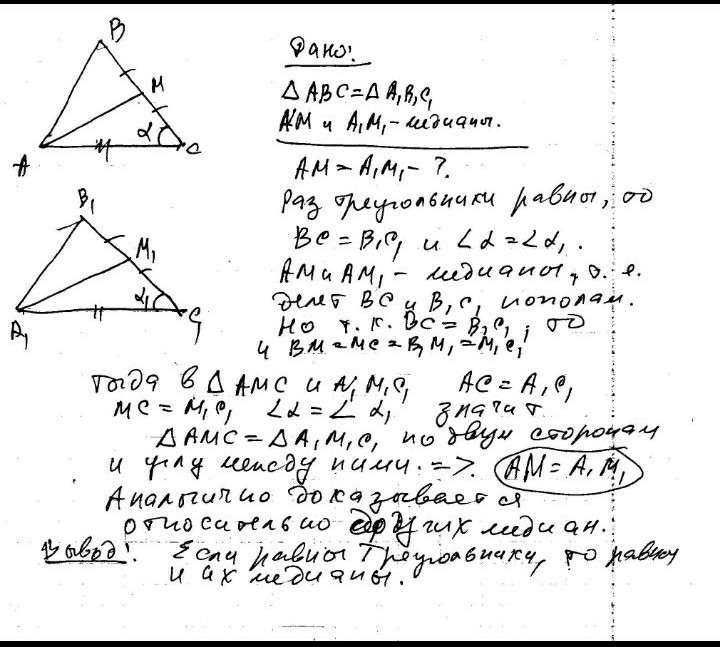 B
M
α
A
C
B₁
M₁
α₁
A₁
C₁
Дано:
△ABC = △A₁B₁C₁
AM и A₁M₁ – медианы.
AM = A₁M₁ – ?
Раз треугольники равны, то
BC = B₁C₁ и ∠α = ∠α₁.
AM и AM₁ – медианы, т. е.
делят BC и B₁C₁ пополам.
Но т. к. BC = B₁C₁, то
и BM = MC = B₁M₁ = M₁C₁
Тогда в △AMC и A₁M₁C₁ AC = A₁C₁
MC = M₁C₁ ∠α = ∠α₁ значит
△AMC = △A₁M₁C₁ по двум сторонам
и углу между ними. => AM = A₁M₁
Аналогично доказывается
относительно других медиан.
Вывод: Если равны треугольники, то равны
и их медианы.